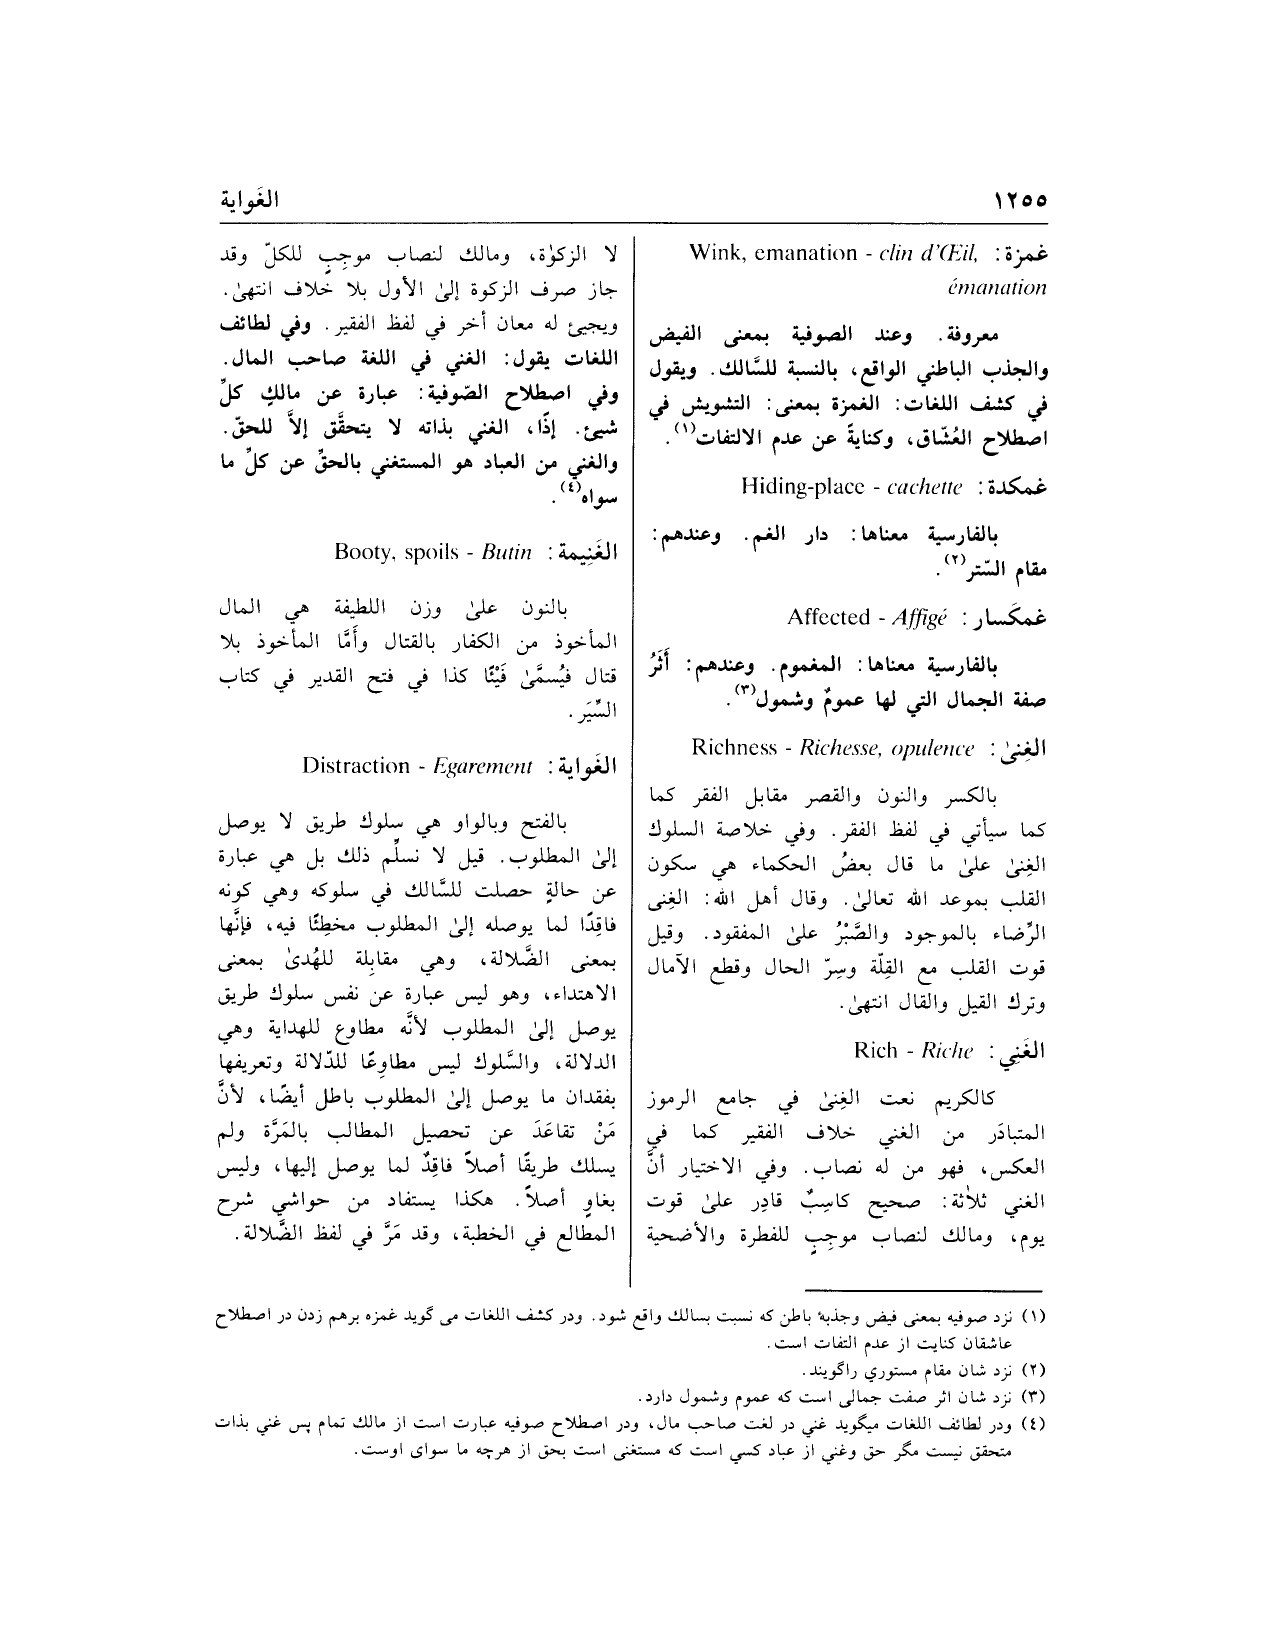 ١٢٥٥
الغَواية
غمزة: Wink, emanation - clin d'Œil,
émanation
معروفة. وعند الصوفية بمعنى الفيض
والجذب الباطني الواقع، بالنسبة للسَّالك. ويقول
في كشف اللغات: الغمزة بمعنى: التشويش في
اصطلاح العُشّاق، وكنايةً عن عدم الالتفات(١).
غمكدة: Hiding-place - cachette
بالفارسية معناها: دار الغم. وعندهم:
مقام السّتر(٢).
غمكَسار: Affected - Affigé
بالفارسية معناها: المغموم. وعندهم: أَثَرُ
صفة الجمال التي لها عمومٌ وشمول(٣).
الغِنىٰ: Richness - Richesse, opulence
بالكسر والنون والقصر مقابل الفقر كما
كما سيأتي في لفظ الفقر. وفي خلاصة السلوك
الغِنىٰ علىٰ ما قال بعضُ الحكماء هي سكون
القلب بموعد الله تعالىٰ. وقال أهل الله: الغِنى
الرِّضاء بالموجود والصَّبْرُ علىٰ المفقود. وقيل
قوت القلب مع القِلّة وسِرّ الحال وقطع الآمال
وترك القيل والقال انتهىٰ.
الغَنِي: Rich - Riche
كالكريم نعت الغِنىٰ في جامع الرموز
المتبادَر من الغني خلاف الفقير كما في
العكس، فهو من له نصاب. وفي الاختيار أنَّ
الغني ثلاٰثة: صحيح كاسِبٌ قادِر علىٰ قوت
يوم، ومالك لنصاب موجِبٍ للفطرة والأضحية
لا الزكوٰة، ومالك لنصاب موجِبٍ للكلّ وقد
جاز صرف الزكوة إلىٰ الأول بلا خلاف انتهىٰ.
ويجيئ له معان أخر في لفظ الفقير. وفي لطائف
اللغات يقول: الغني في اللغة صاحب المال.
وفي اصطلاح الصّوفية: عبارة عن مالكٍ كلِّ
شيئ. إذًا، الغني بذاته لا يتحقَّق إلاَّ للحقّ.
والغني من العباد هو المستغني بالحقِّ عن كلِّ ما
سواه(٤).
الغَنِيمة: Booty, spoils - Butin
بالنون علىٰ وزن اللطيفة هي المال
المأخوذ من الكفار بالقتال وأَمَّا المأخوذ بلا
قتال فيُسمَّىٰ فَيْئًا كذا في فتح القدير في كتاب
السِّيَر.
الغَواية: Distraction - Egarement
بالفتح وبالواو هي سلوك طريق لا يوصل
إلىٰ المطلوب. قيل لا نسلِّم ذلك بل هي عبارة
عن حالةٍ حصلت للسَّالك في سلوكه وهي كونه
فاقِدًا لما يوصله إلىٰ المطلوب مخطِئًا فيه، فإنَّها
بمعنى الضَّلالة، وهي مقابِلة للهُدىٰ بمعنى
الاهتداء، وهو ليس عبارة عن نفس سلوك طريق
يوصل إلىٰ المطلوب لأنَّه مطاوع للهداية وهي
الدلالة، والسَّلوك ليس مطاوِعًا للدّلالة وتعريفها
بفقدان ما يوصل إلىٰ المطلوب باطل أيضًا، لأنَّ
مَنْ تقاعَدَ عن تحصيل المطالب بالمَرَّة ولم
يسلك طريقًا أصلاً فاقِدٌ لما يوصل إليها، وليس
بغاوٍ أصلاً. هكذا يستفاد من حواشي شرح
المطالع في الخطبة، وقد مَرَّ في لفظ الضَّلالة.
(١) نزد صوفيه بمعنى فيض وجذبهٔ باطن كه نسبت بسالك واقع شود. ودر كشف اللغات مى گويد غمزه برهم زدن در اصطلاح
عاشقان كنايت از عدم التفات است.
(٢) نزد شان مقام مستوري راگويند.
(٣) نزد شان اثر صفت جمالى است كه عموم وشمول دارد.
(٤) ودر لطائف اللغات ميگويد غني در لغت صاحب مال، ودر اصطلاح صوفيه عبارت است از مالك تمام پس غني بذات
متحقق نيست مگر حق وغني از عباد كسي است كه مستغنى است بحق از هرچه ما سواى اوست.